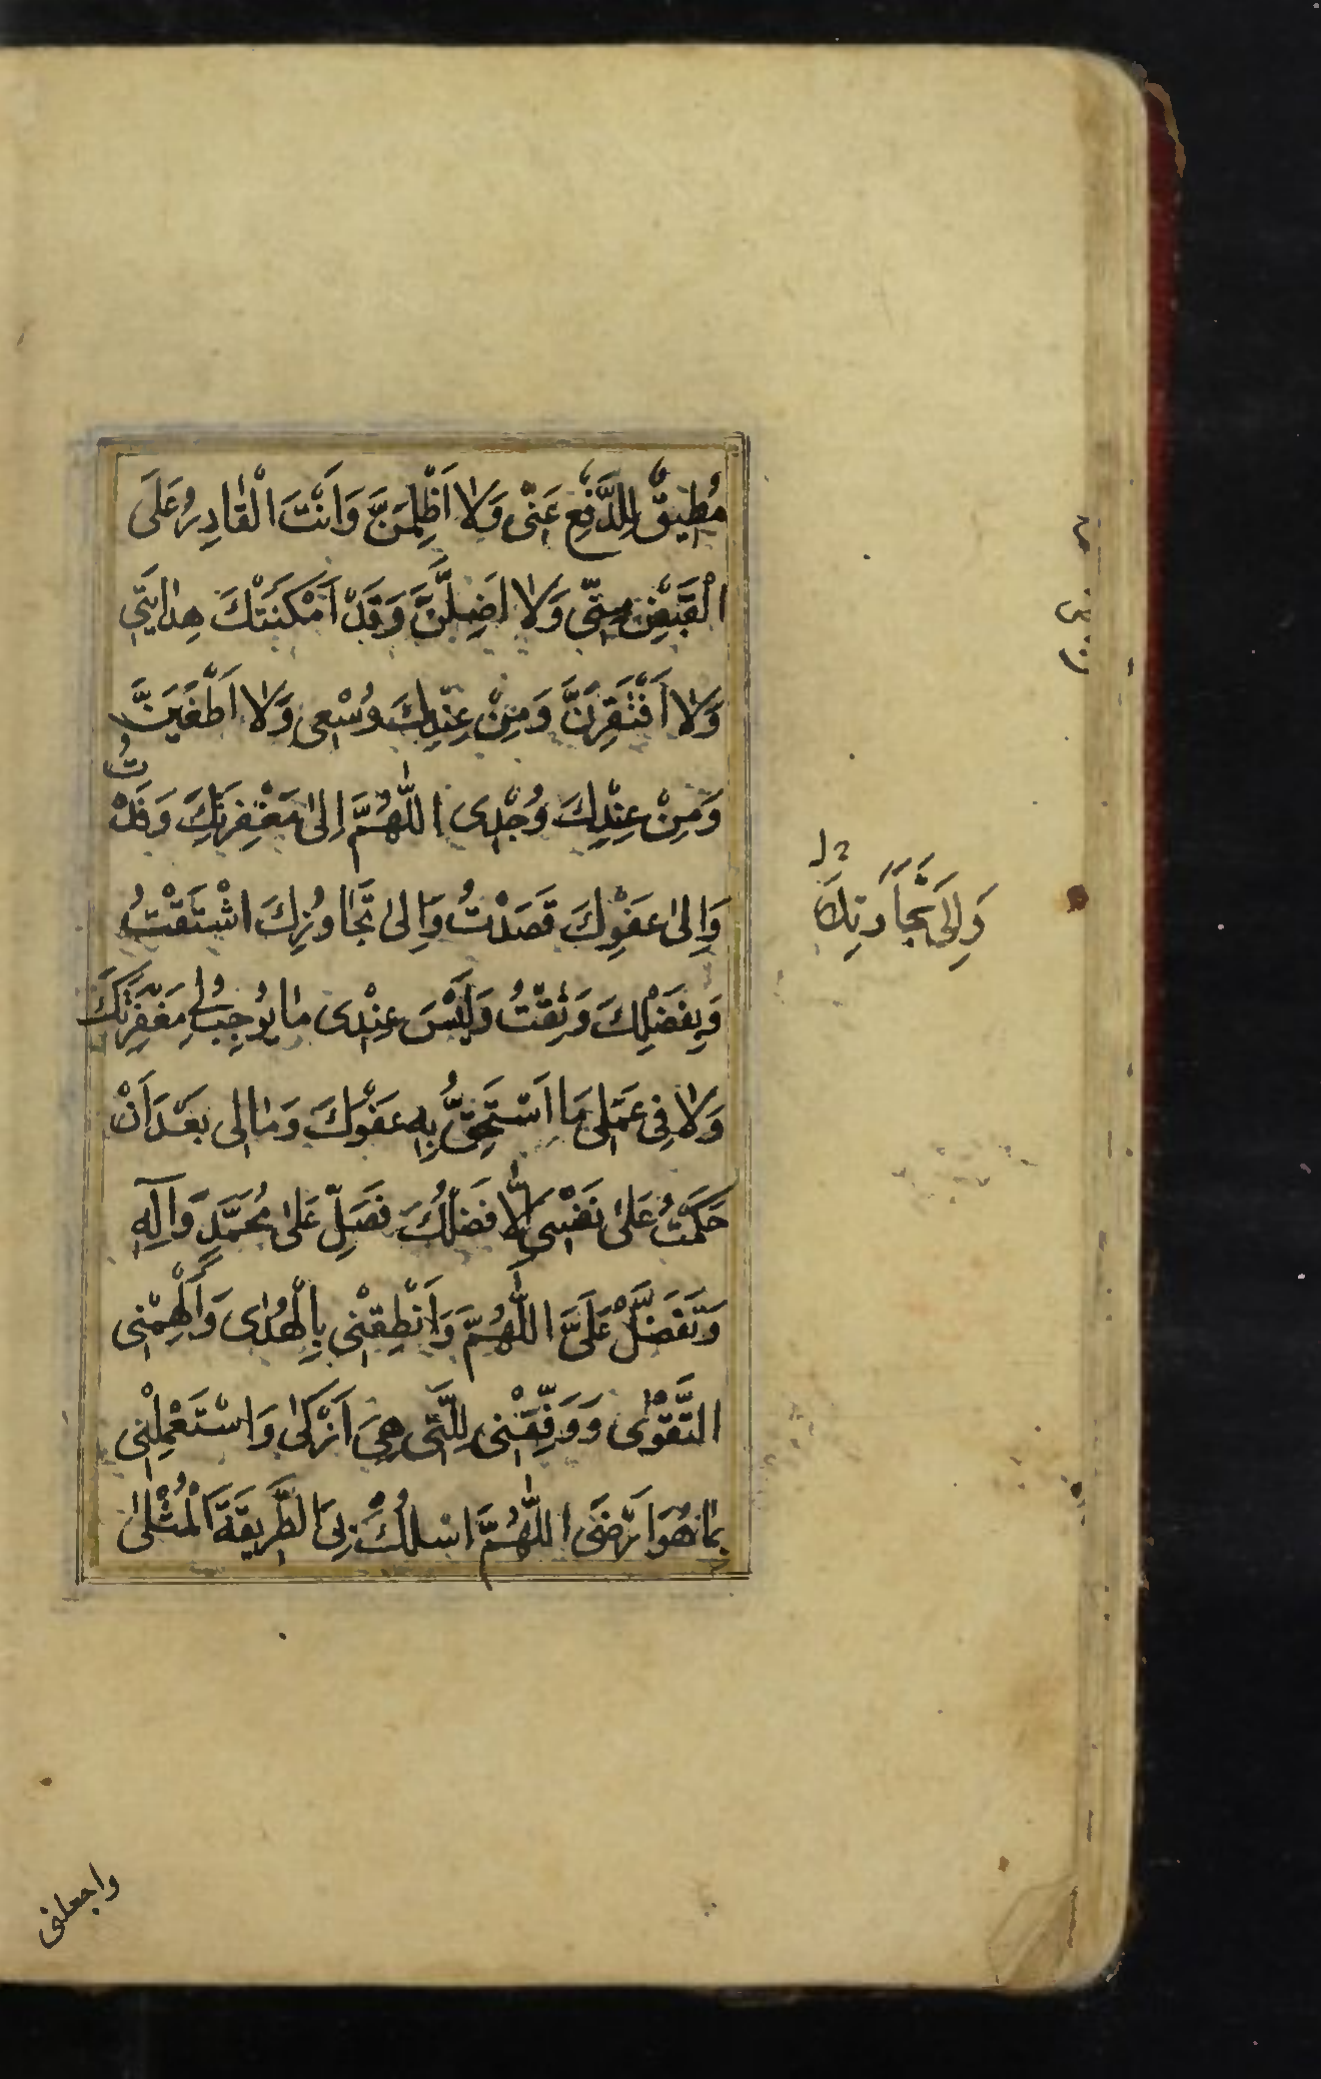 مُطِيقٌ لِلدَّفْعِ عَنّى وَلاٰ اَظْلِمَنَّ وَاَنْتَ الْقٰادِرُ عَلَى
الْقَبْضِ مِنّى وَلاٰ اَضِلَّنَّ وَقَدْ اَمْكَنَتْكَ هِدٰايَتى
وَلاٰ اَفْتَقِرَنَّ وَمِنْ عِنْدِكَ وُسْعى وَلاٰ اَطْغَيَنَّ
وَمِنْ عِنْدِكَ وُجْدى اللّٰهُمَّ اِلىٰ مَغْفِرَتِكَ وَفَدْتُ
وَاِلىٰ عَفْوِكَ قَصَدْتُ وَاِلىٰ تَجٰاوُزِكَ اشْتَقْتُ
وَبِفَضْلِكَ وَثِقْتُ وَلَيْسَ عِنْدى مٰا يُوجِبُ لى مَغْفِرَتَكَ
وَلاٰ فى عَمَلى مَا اَسْتَحِقُّ بِهِ عَفْوَكَ وَمٰا لى بَعْدَ اَنْ
حَكَمْتُ عَلىٰ نَفْسى اِلاّٰ فَضْلُكَ فَصَلِّ عَلىٰ مُحَمَّدٍ وَآلِهِ
وَتَفَضَّلْ عَلَىَّ اللّٰهُمَّ وَاَنْطِقْنى بِالْهُدٰى وَاَلْهِمْنى
التَّقْوٰى وَوَفِّقْنى لِلَّتى هِىَ اَزْكىٰ وَاسْتَعْمِلْنى
بِمٰا هُوَ اَرْضىٰ اللّٰهُمَّ اسْلُكْ بِىَ الطَّريقَةَ الْمُثْلىٰ
واجعلنى